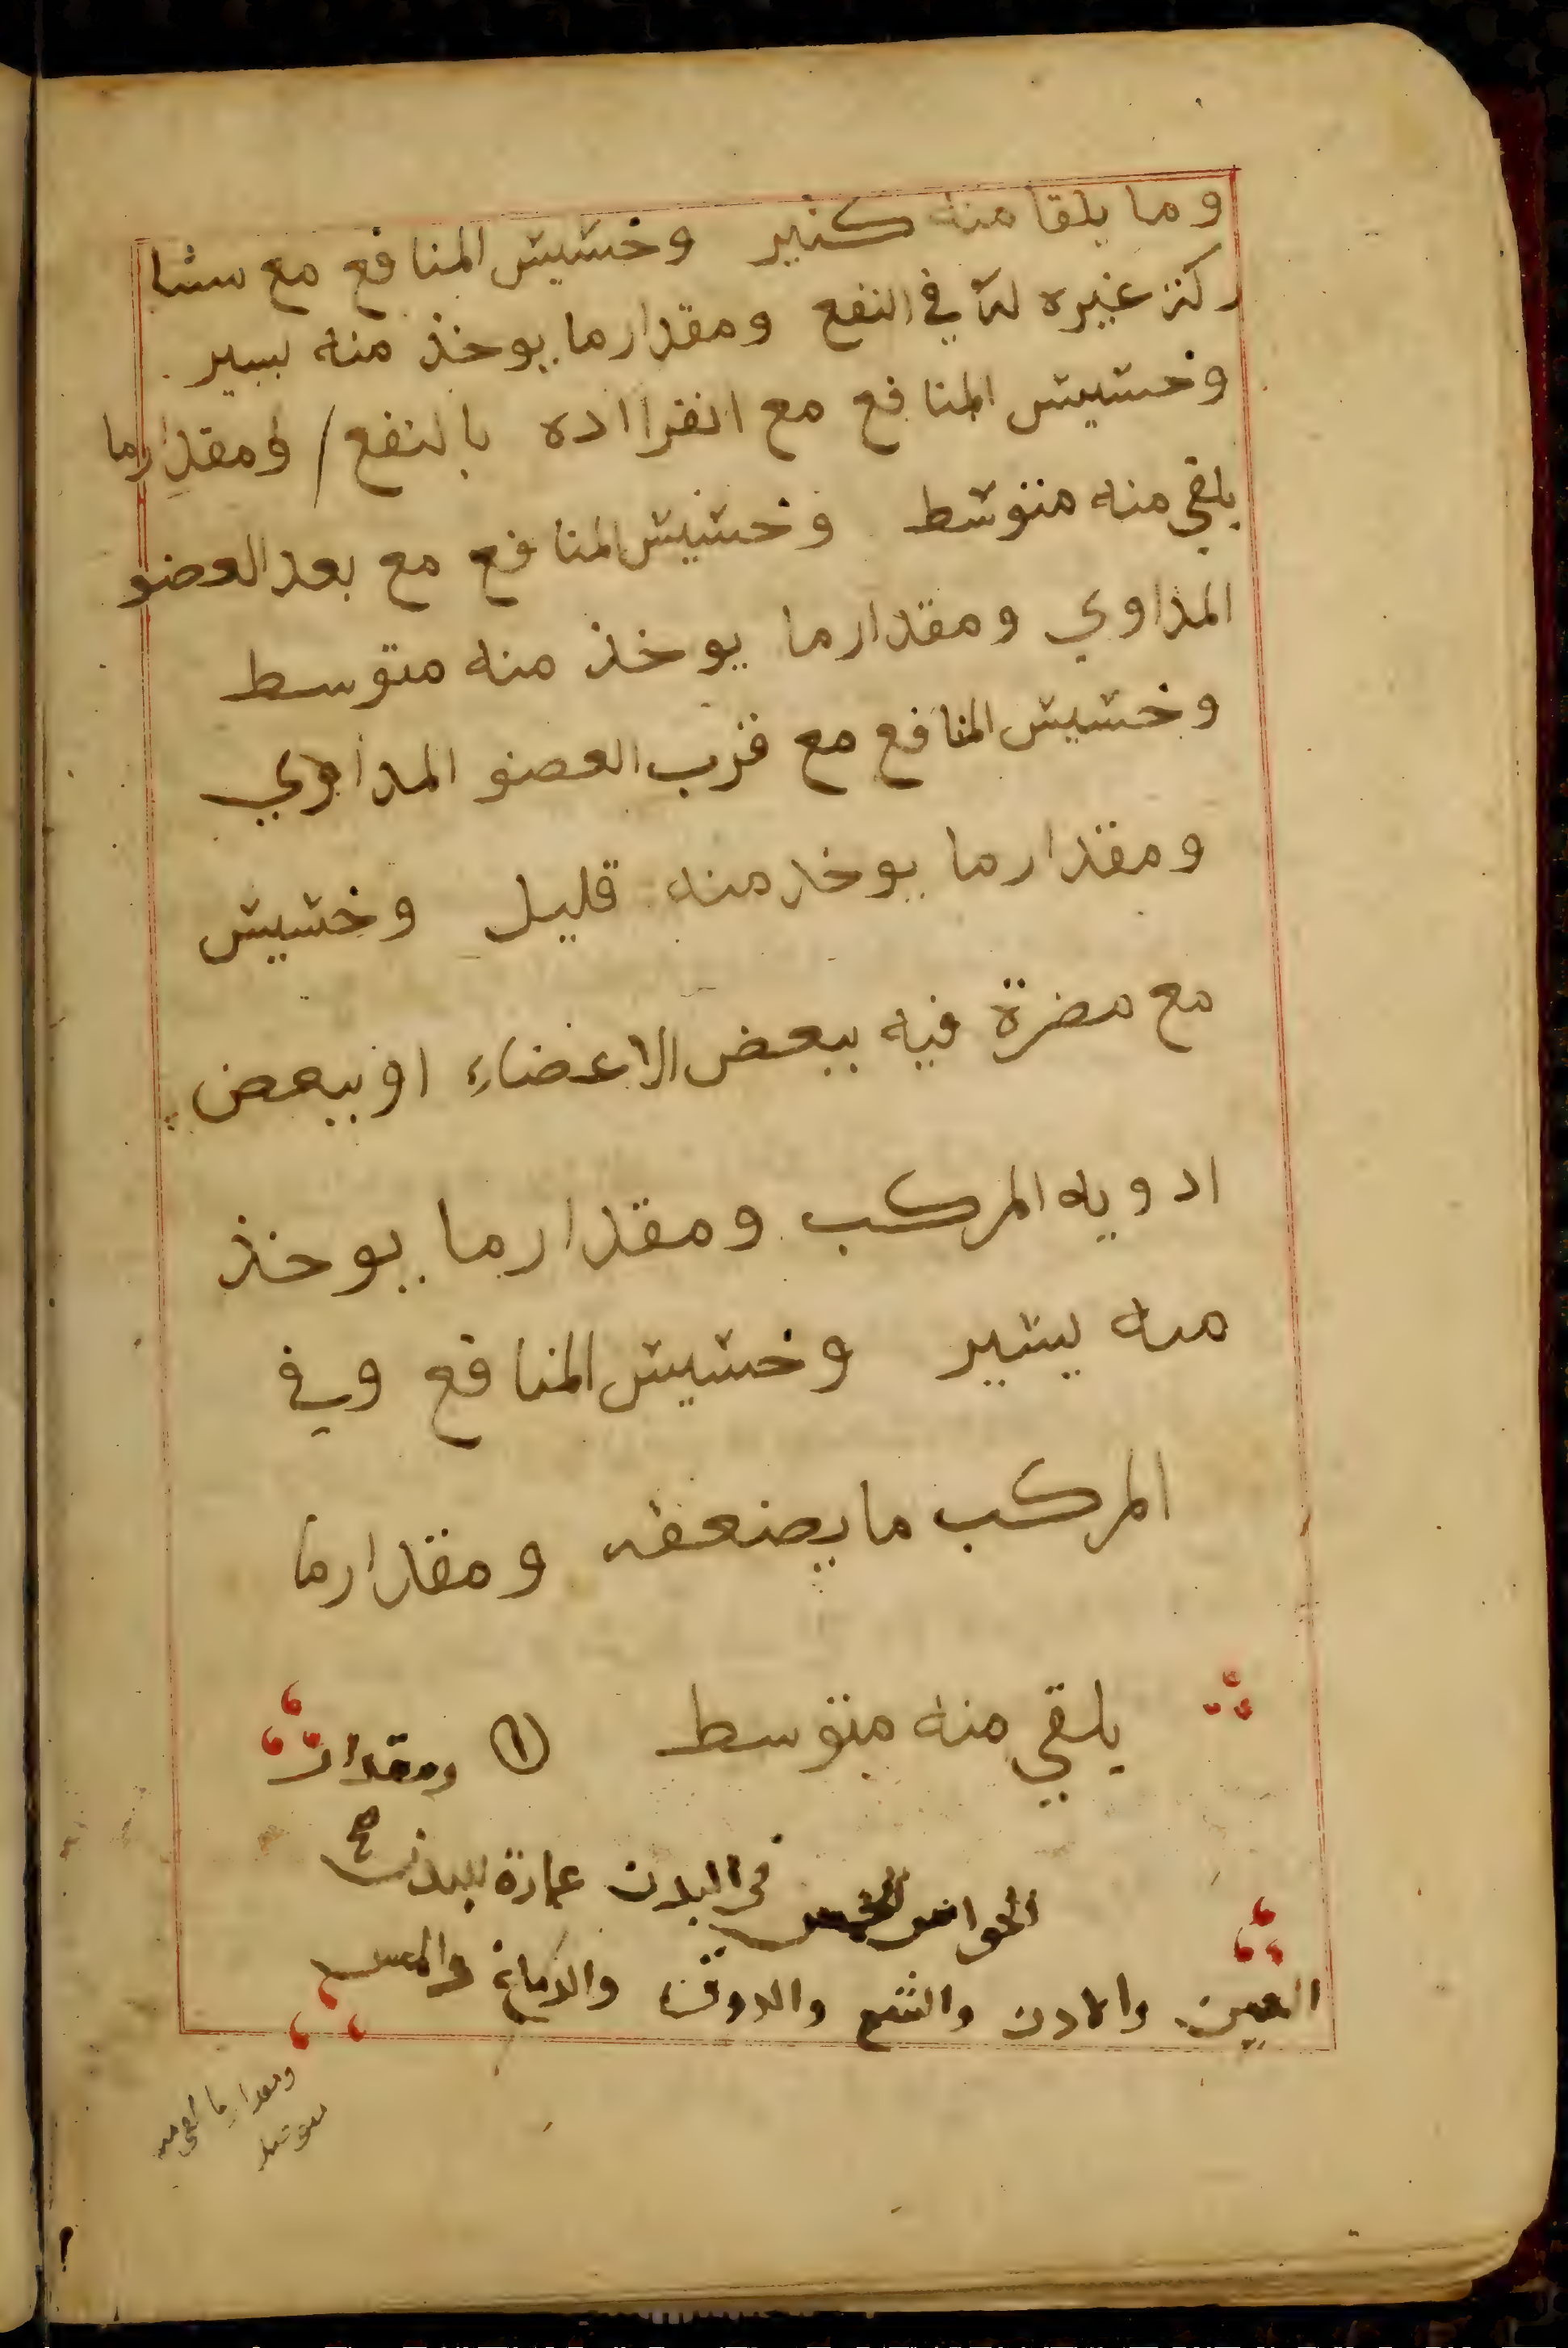 وما يلقا منه كثير وخسيس المنافع مع مشا
ركة غيره له في النفع ومقدار ما يوخذ منه يسير
وخسيس المنافع مع انفرااده بالنفع / ومقدار ما
يلقي منه متوسط وخسيس المنافع مع بعد العضو
المداوي ومقدار ما يوخذ منه متوسط
وخسيس المنافع مع قرب العضو المداوي
ومقدار ما يوخد منه قليل وخسيس
مع مضرة فيه ببعض الاعضاء او ببعض
ادويه المركب ومقدار ما يوخذ
منه يسير وخسيس المنافع وفي
المركب ما يضعفه ومقدار ما
يلقي منه متوسط ومقدار
الحواس الخمس في البدن عمارة للبدن
العين والادن والشم والدوق والدماغ والمس
ومقدار ما يلقي منه
متوسط